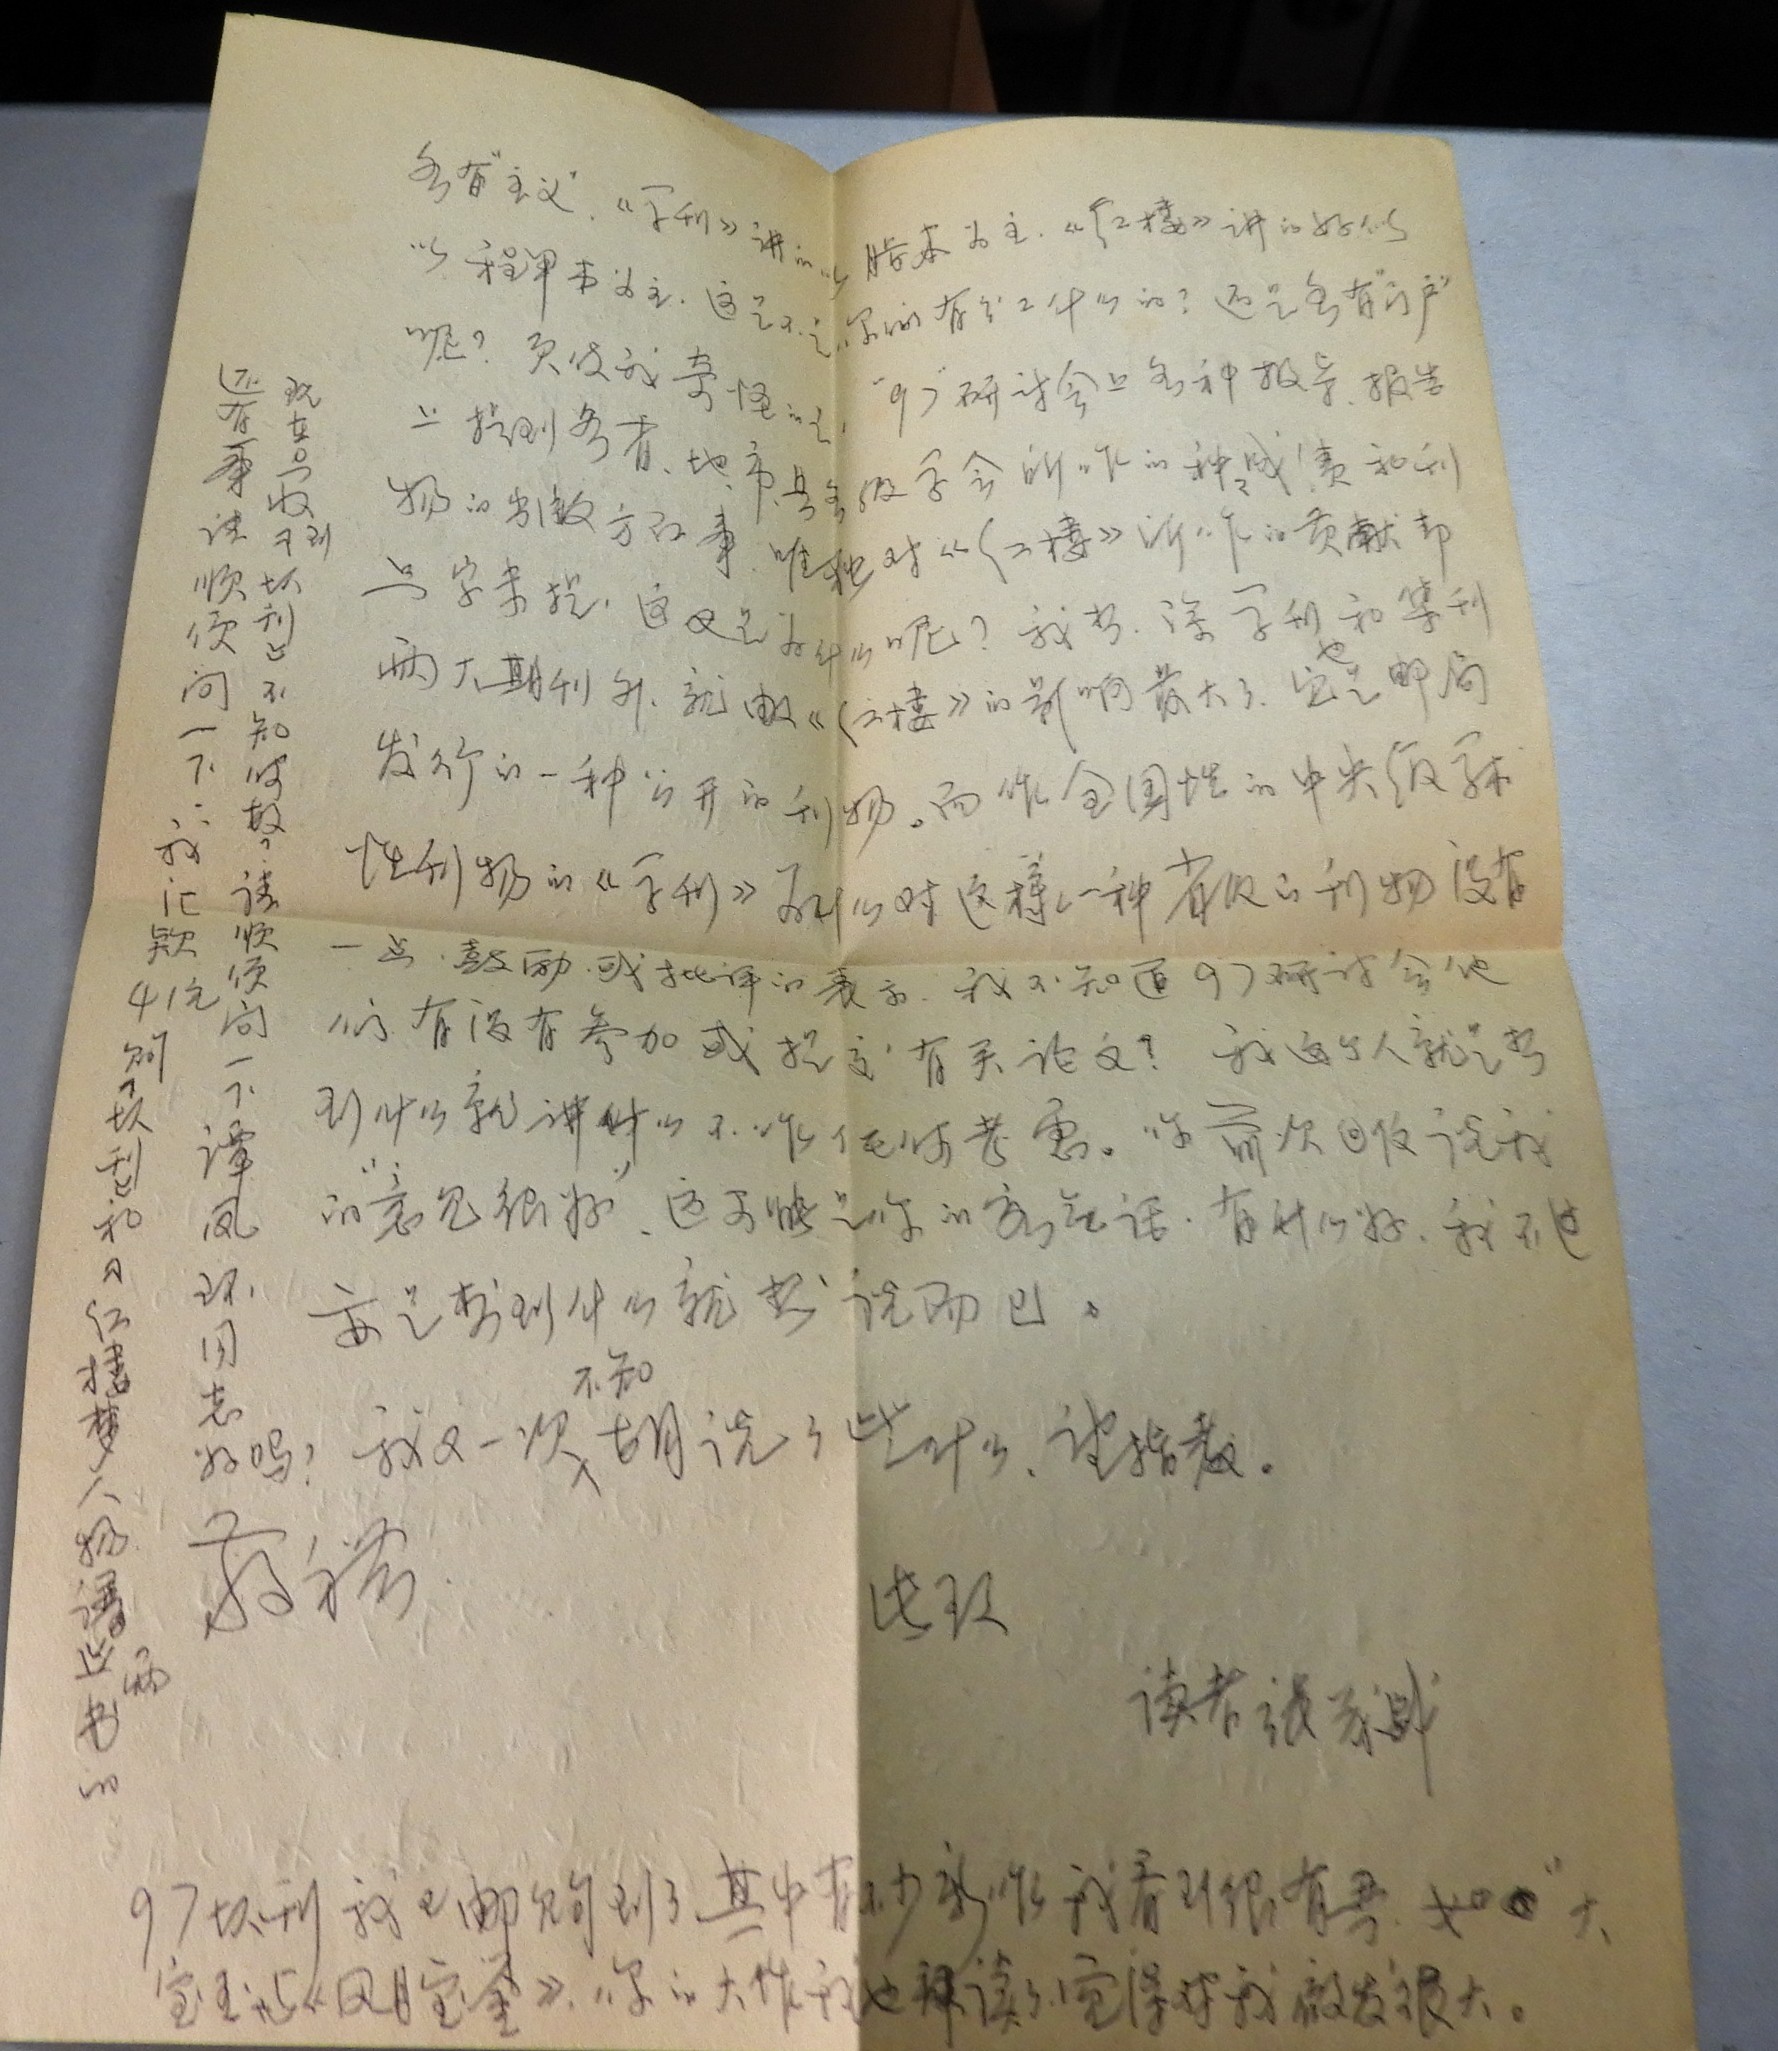 各有“主义”、《学刊》讲的以脂本为主.《红楼》讲的好似
以程甲本为主.这是不是你们有分工什么的?还是各有“门户”
呢?更使我奇怪的是,“97”研讨会上各种报导、报告
上提到各省、地、市、县各级学会所作的种种成绩和刊
物的创办方面事,唯独对《红楼》所作的贡献却
只字未提,这又是为什么呢?我想,除学刊和集刊
两大期刊外、就由《红楼》的影响最大了、它也是邮局
发行的一种公开的刊物。而作全国性的中央级学术
性刊物的《学刊》为什么对这样一种省级的刊物没有
一点鼓励或批评的表示.我不知道97研讨会他
们有没有参加或提交有关论文?我这个人就是想
到什么就讲什么不作任何考虑。你前次回信说我
的“意见很好”、这可能是你的客气话.有什么好、我不过
是想到什么就说而已。
我又一次不知胡说了些什么、望指教。
此致
敬禮
读者 张
97增刊我已邮购到了其中有不少新作我看到很有兴.如“大
宝玉与《风月宝鉴》、你的大作我也拜读了觉得对我启发很大。
还有事请顺便问一下:我汇款41元购增刊和《红楼梦人物谱》两书的
现在只收到增刊、不知何故?请顺便问一下谭凤环同志
好吗?